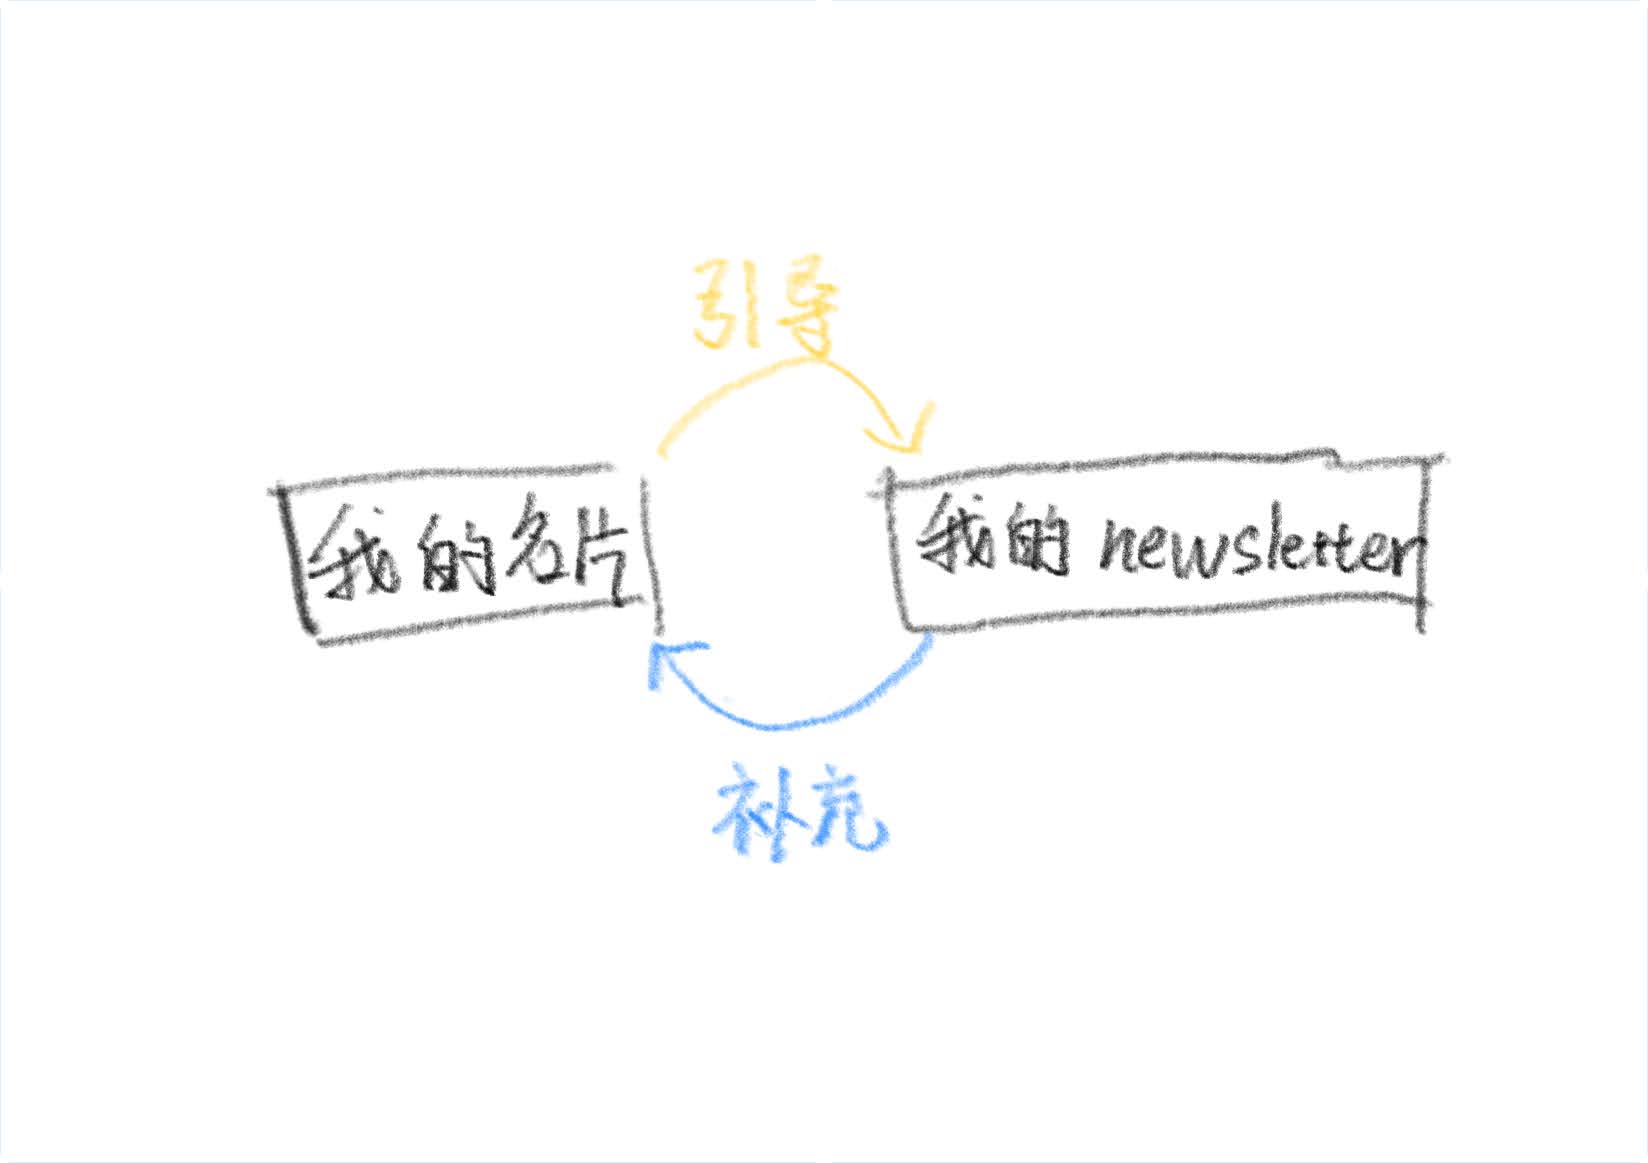 引导
我的名片
我的 newsletter
补充